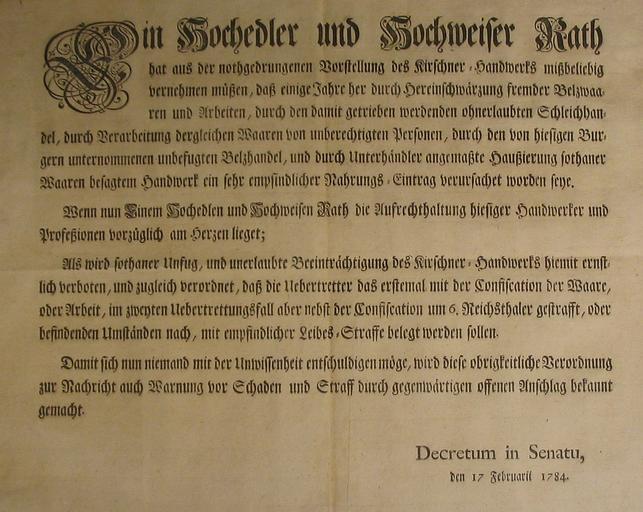 Ein Hochedler und Hochweiser Rath
hat aus der nothgedrungenen Vorstellung des Kirschner-Handwerks mißbeliebig
vernehmen müßen, daß einige Jahre her durch Hereinschwärzung fremder Belzwaa-
ren und Arbeiten, durch den damit getrieben werdenden ohnerlaubten Schleichhan-
del, durch Verarbeitung dergleichen Waaren von unberechtigten Personen, durch den von hiesigen Bur-
gern unternommenen unbefugten Belzhandel, und durch Unterhändler angemaßte Haußierung sothaner
Waaren besagtem Handwerk ein sehr empfindlicher Nahrungs-Eintrag verursachet worden seye.
Wenn nun Einem Hochedlen und Hochweisen Rath die Aufrechthaltung hiesiger Handwerker und
Profeßionen vorzüglich am Herzen lieget;
Als wird sothaner Unfug, und unerlaubte Beeinträchtigung des Kirschner-Handwerks hiemit ernst-
lich verboten, und zugleich verordnet, daß die Uebertretter das erstemal mit der Confiscation der Waare,
oder Arbeit, im zweyten Uebertrettungsfall aber nebst der Confiscation um 6. Reichsthaler gestrafft, oder
befindenden Umständen nach, mit empfindlicher Leibes-Straffe belegt werden sollen.
Damit sich nun niemand mit der Unwissenheit entschuldigen möge, wird diese obrigkeitliche Verordnung
zur Nachricht auch Warnung vor Schaden und Straff durch gegenwärtigen offenen Anschlag bekannt
gemacht.
Decretum in Senatu,
den 17 Februarii 1784.